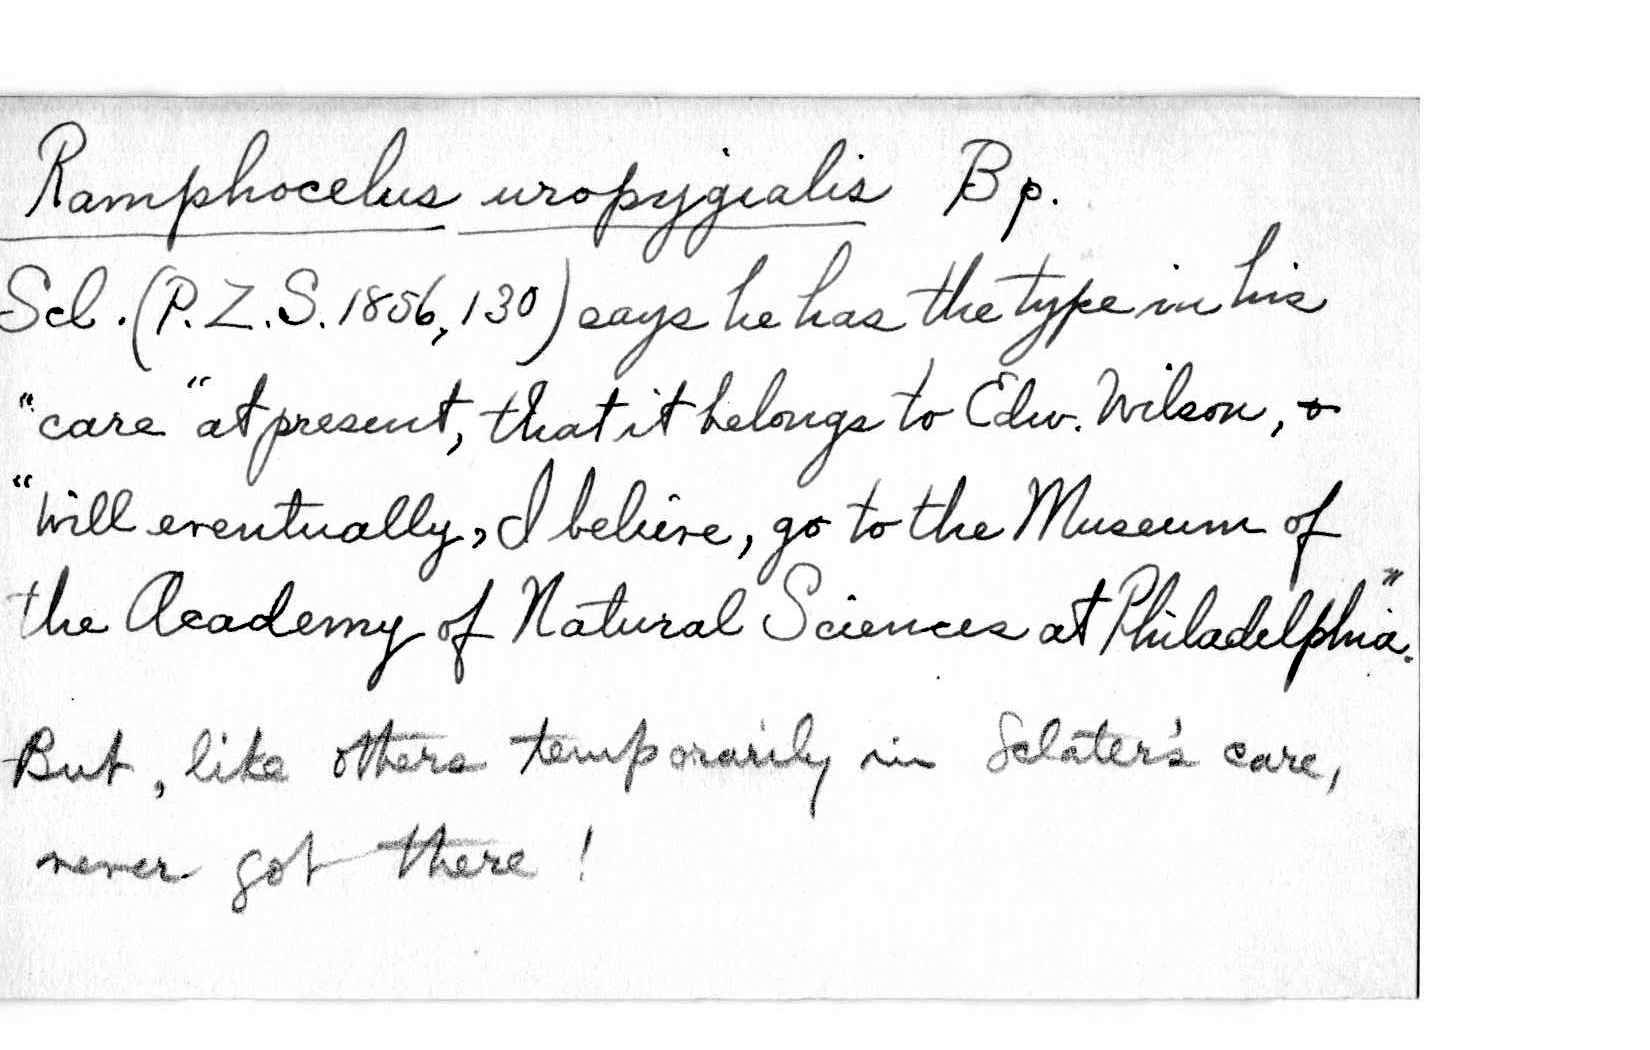 Ramphocelus uropygialis Bp.
Scl. (P.Z.S. 1856, 130) says he has the type in his
"care" at present, that it belongs to Edw. Wilson, &
"will eventually, I believe, go to the Museum of
the Academy of Natural Sciences at Philadelphia."
But, like others temporarily in Sclater's care,
never got there!